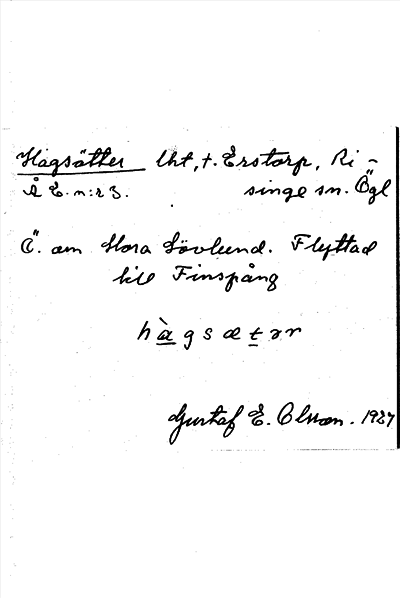 Hagsätter lht, t. Erstorp, Ri-
Å E. n:r 3. singe sn. Ögl
Ö. om Stora Lövlund. Flyttad
till Finspång
hàgsætər
Gustaf E. Olsson. 1937